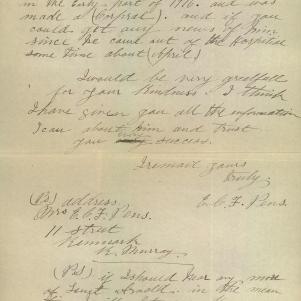 in the early part of 1916. and was
made a (Corpral). and if you
could get any news of him.
since he came out of the Hospital
some time about (April)
I would be very greatfull
for your kindness. I think
I have given you all the information
I can about him and trust
you success.
I remain yours
truly.
E. C. F. Pens.
(Ps) address
Mrs E. C. F. Pens.
11 street
Renmark
R. Murray.
(Ps) if I should hear any more
of Sergt Arnold. in the mean